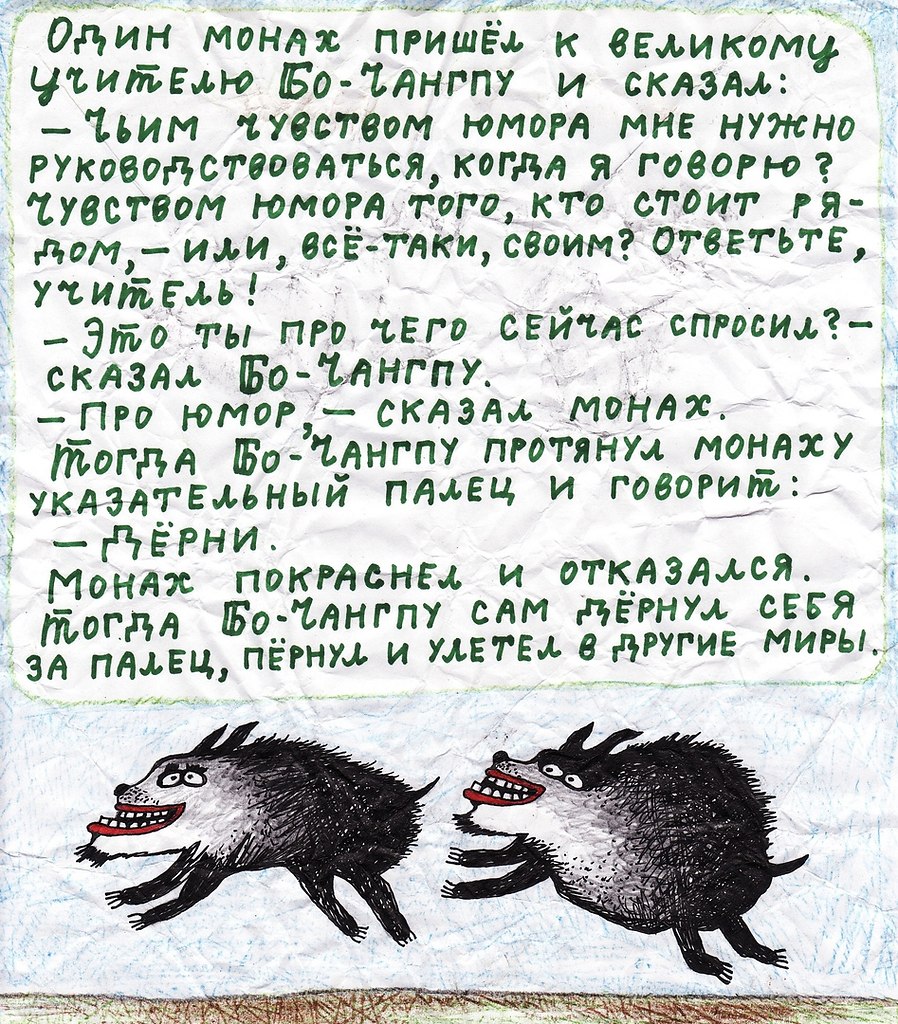 Один монах пришёл к великому
учителю Бо-Чангпу и сказал:
— Чьим чувством юмора мне нужно
руководствоваться, когда я говорю?
Чувством юмора того, кто стоит ря-
дом, — или, всё-таки, своим? Ответьте,
учитель!
— Это ты про чего сейчас спросил? —
сказал Бо-Чангпу.
— Про юмор, — сказал монах.
Тогда Бо-Чангпу протянул монаху
указательный палец и говорит:
— Дёрни.
Монах покраснел и отказался.
Тогда Бо-Чангпу сам дёрнул себя
за палец, пёрнул и улетел в другие миры.